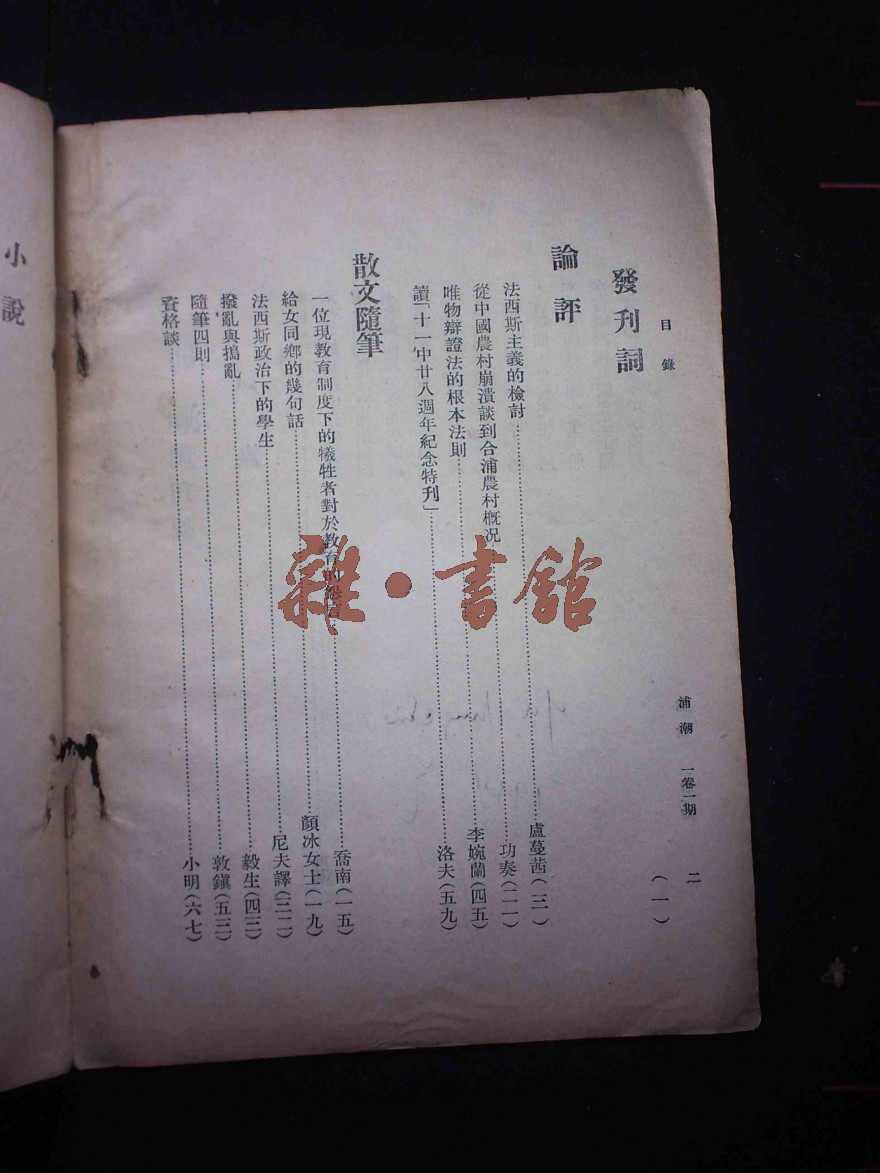 浦潮 一卷一期 二
目錄
發刊詞 (一)
論評
法西斯主義的檢討 盧蔓茜(三)
從中國農村崩潰談到合浦農村概况 功奏(二一)
唯物辯證法的根本法則 李婉蘭(四五)
讀「十一中廿八週年紀念特刊」 洛夫(五九)
散文隨筆
一位現教育制度下的犧牲者對於教育 喬南(一五)
給女同鄉的幾句話 顏冰女士(一九)
法西斯政治下的學生 尼夫譯(三二)
撥亂與搗亂 毅生(四三)
隨筆四則 敦鎮(五三)
資格談 小明(六七)
小說
雜·書館